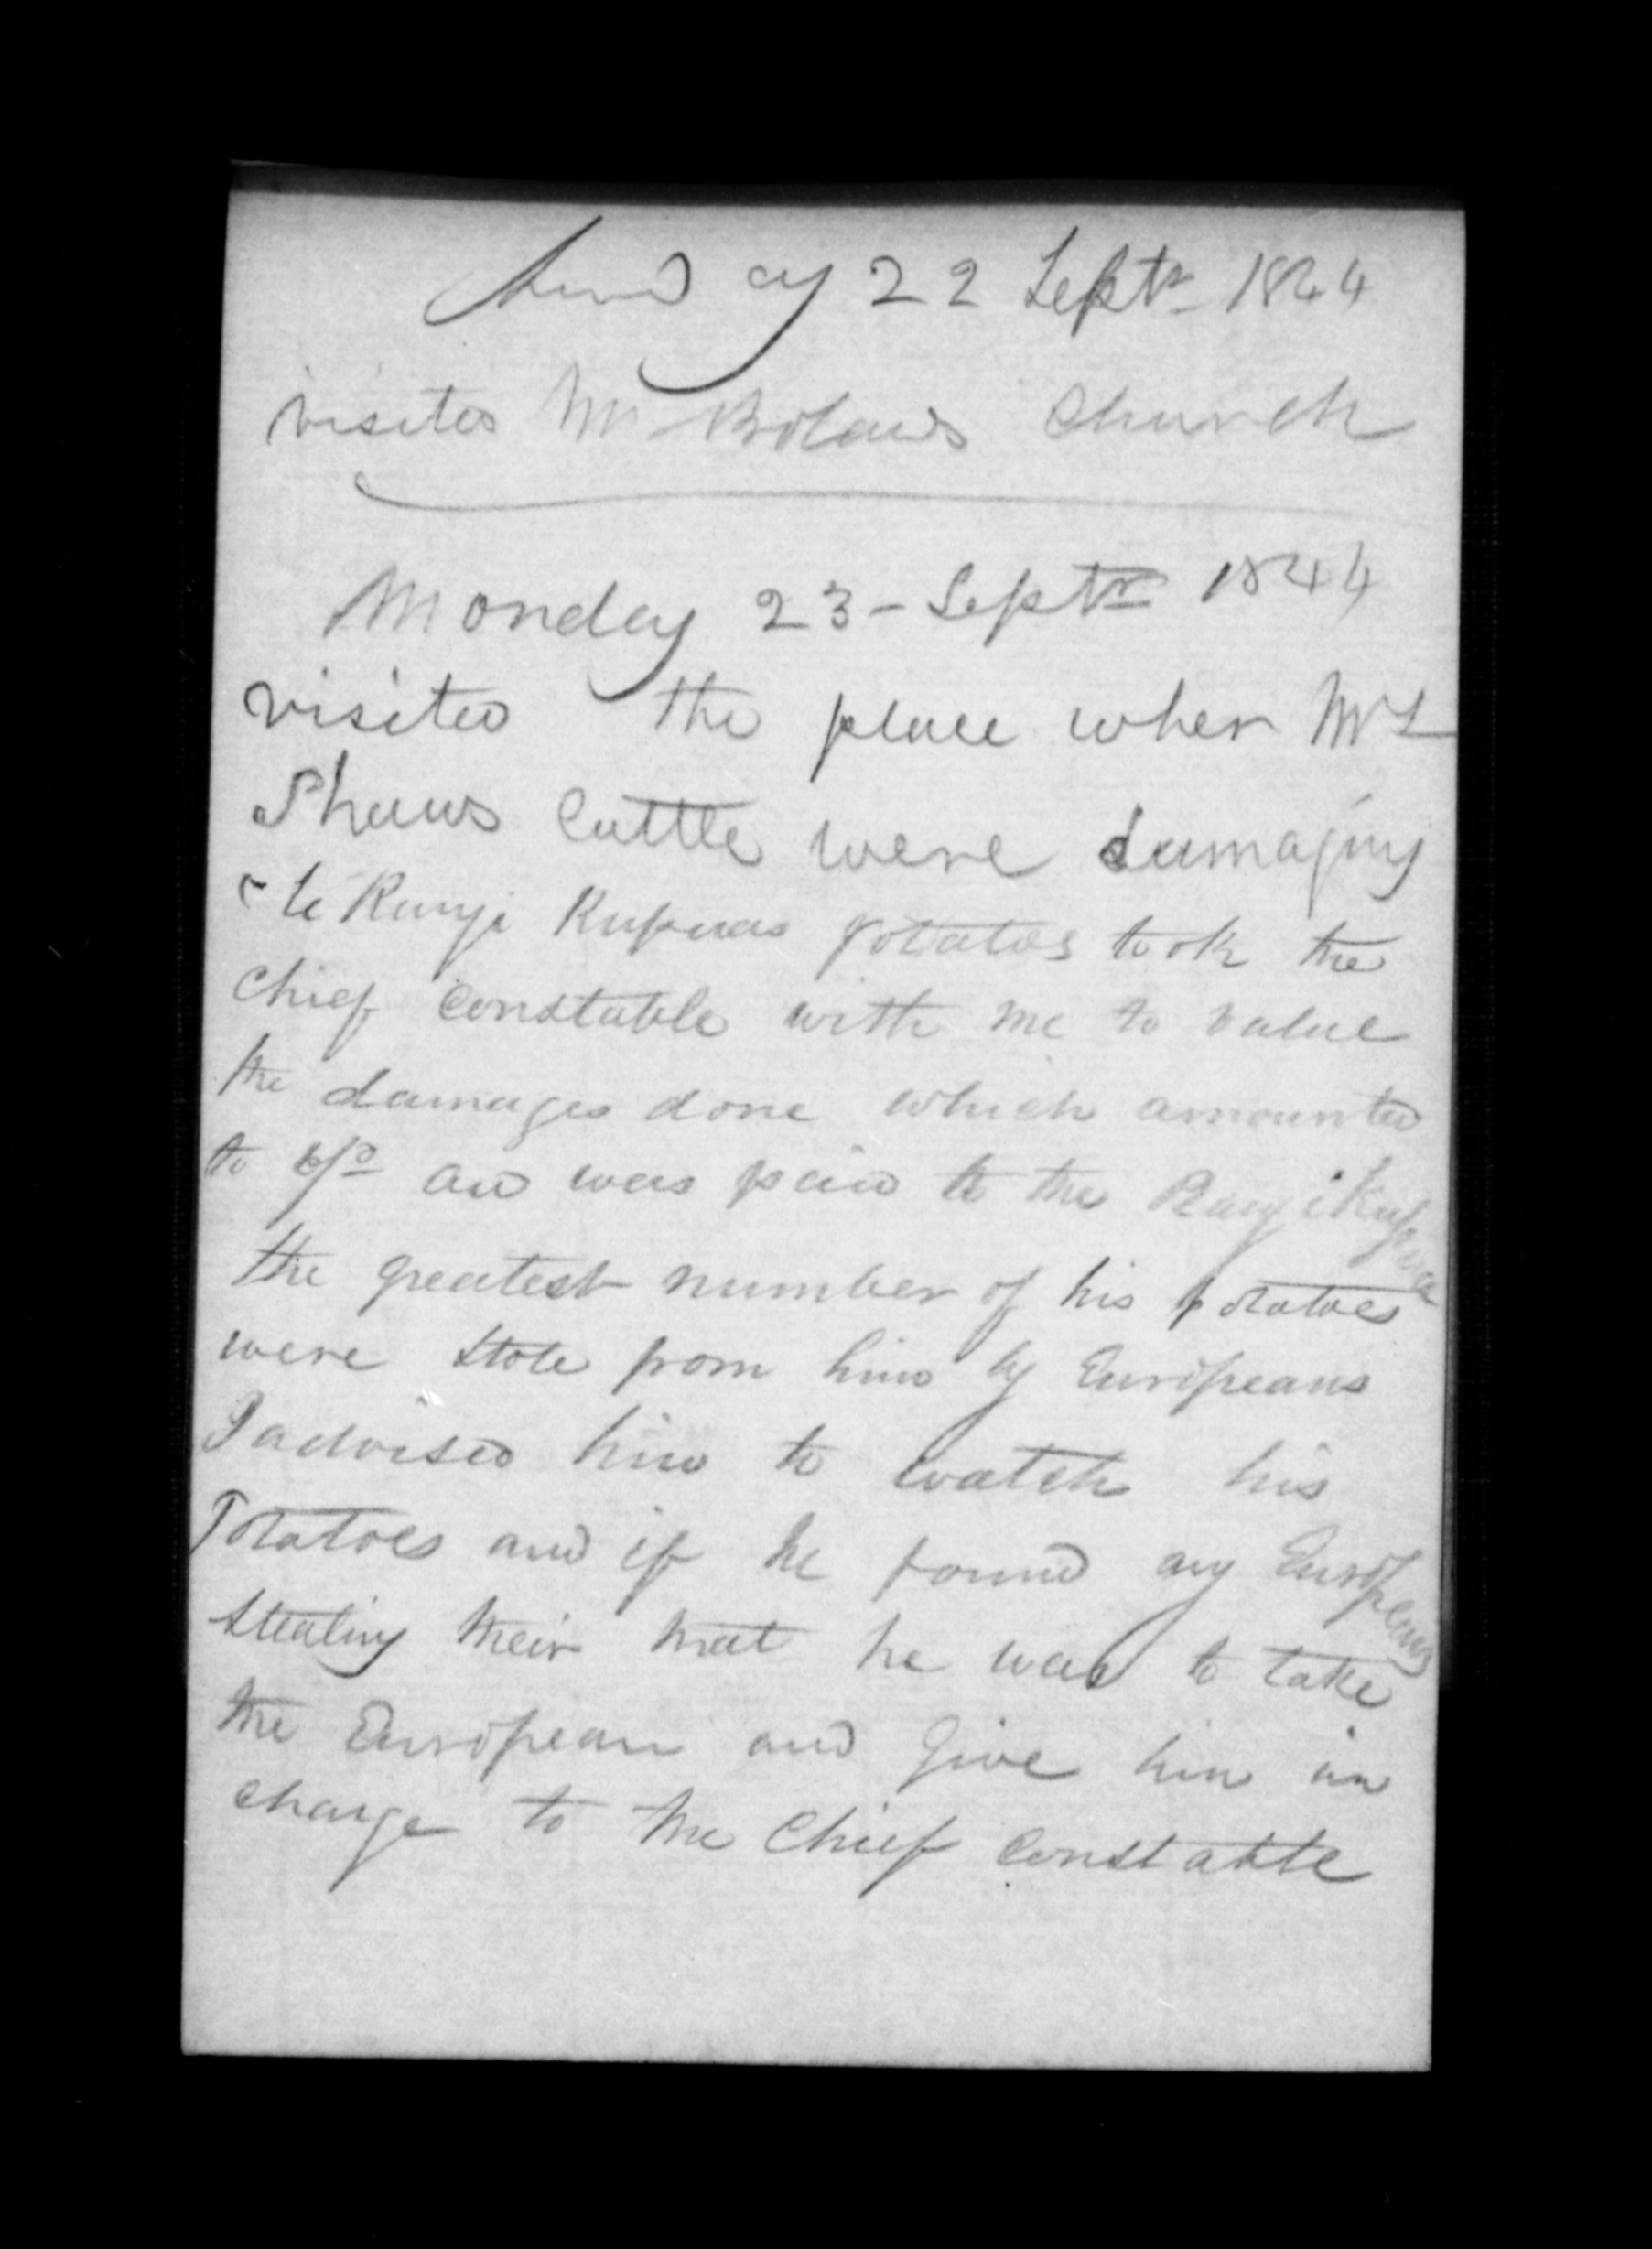 Sunday 22 Septr 1844
visited Mr Bolands Church
Monday 23 - Septr 1844
visited the place wher Mr
Shaws Cattle were damaging
te Rangi Kupuas potatoes took the
Chief Constable with me to value
the damages done which amounted
to and was paid to the Rangi Kupua
the greatest number of his potatoes
were stole from him by Europeans
I advised him to watch his
Potatoes and if he found any Europeans
stealing their that he was to take
the European and Give him in
charge to the Chief Constable